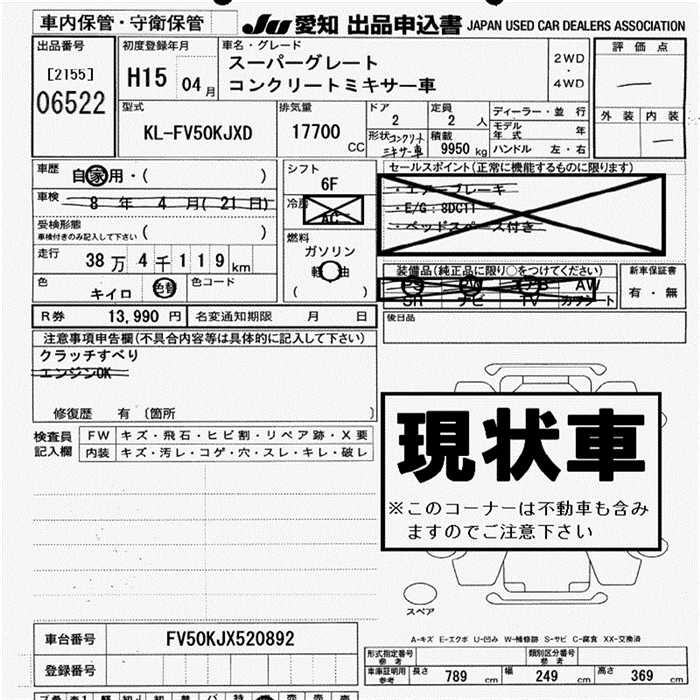 車内保管・守衛保管
JU 愛知 出品申込書 JAPAN USED CAR DEALERS ASSOCIATION
出品番号
[2155]
06522
初度登録年月
H15 04 月
車名・グレード
スーパーグレート
コンクリートミキサー車
2WD
・
4WD
評価点
外装 内装
型式
KL-FV50KJXD
排気量
17700 CC
ドア
2
定員
2 人
形状 コンクリート
ミキサー車
積載
9950 kg
ディーラー・並行
モデル
年式 年
ハンドル 左・右
車歴
自家用・( )
車検
8 年 4 月( 21 日)
受検形態
車検付きのみ記入して下さい ( )
走行
38 万 4 千 1 1 9 km
色
キイロ
色替
色コード
シフト
6F
冷房
AC
燃料
ガソリン
軽油
( )
セールスポイント(正常に機能するものに限ります)
・エアーブレーキ
・E/G:8DC11
・ベッドスペース付き
装備品(純正品に限り○をつけてください)
PS PW AB AW
SR ナビ TV カワシート
新車保証書
有・無
R券 13,990 円
名変通知期限 月 日
後日品
注意事項申告欄(不具合内容等は具体的に記入して下さい)
クラッチすべり
エンジンOK
修復歴 有 〔箇所 〕
検査員
記入欄
FW キズ・飛石・ヒビ割・リペア跡・X要
内装 キズ・汚レ・コゲ・穴・スレ・キレ・破レ
現状車
※このコーナーは不動車も含み
ますのでご注意下さい
スペア
A-キズ E-エクボ U-凹み W-補修跡 S-サビ C-腐食 XX-交換済
車台番号 FV50KJX520892
登録番号
形式指定番号
参考
類別区分番号
参考
車庫証明用
参考
長さ 789 cm 幅 249 cm 高さ 369 cm